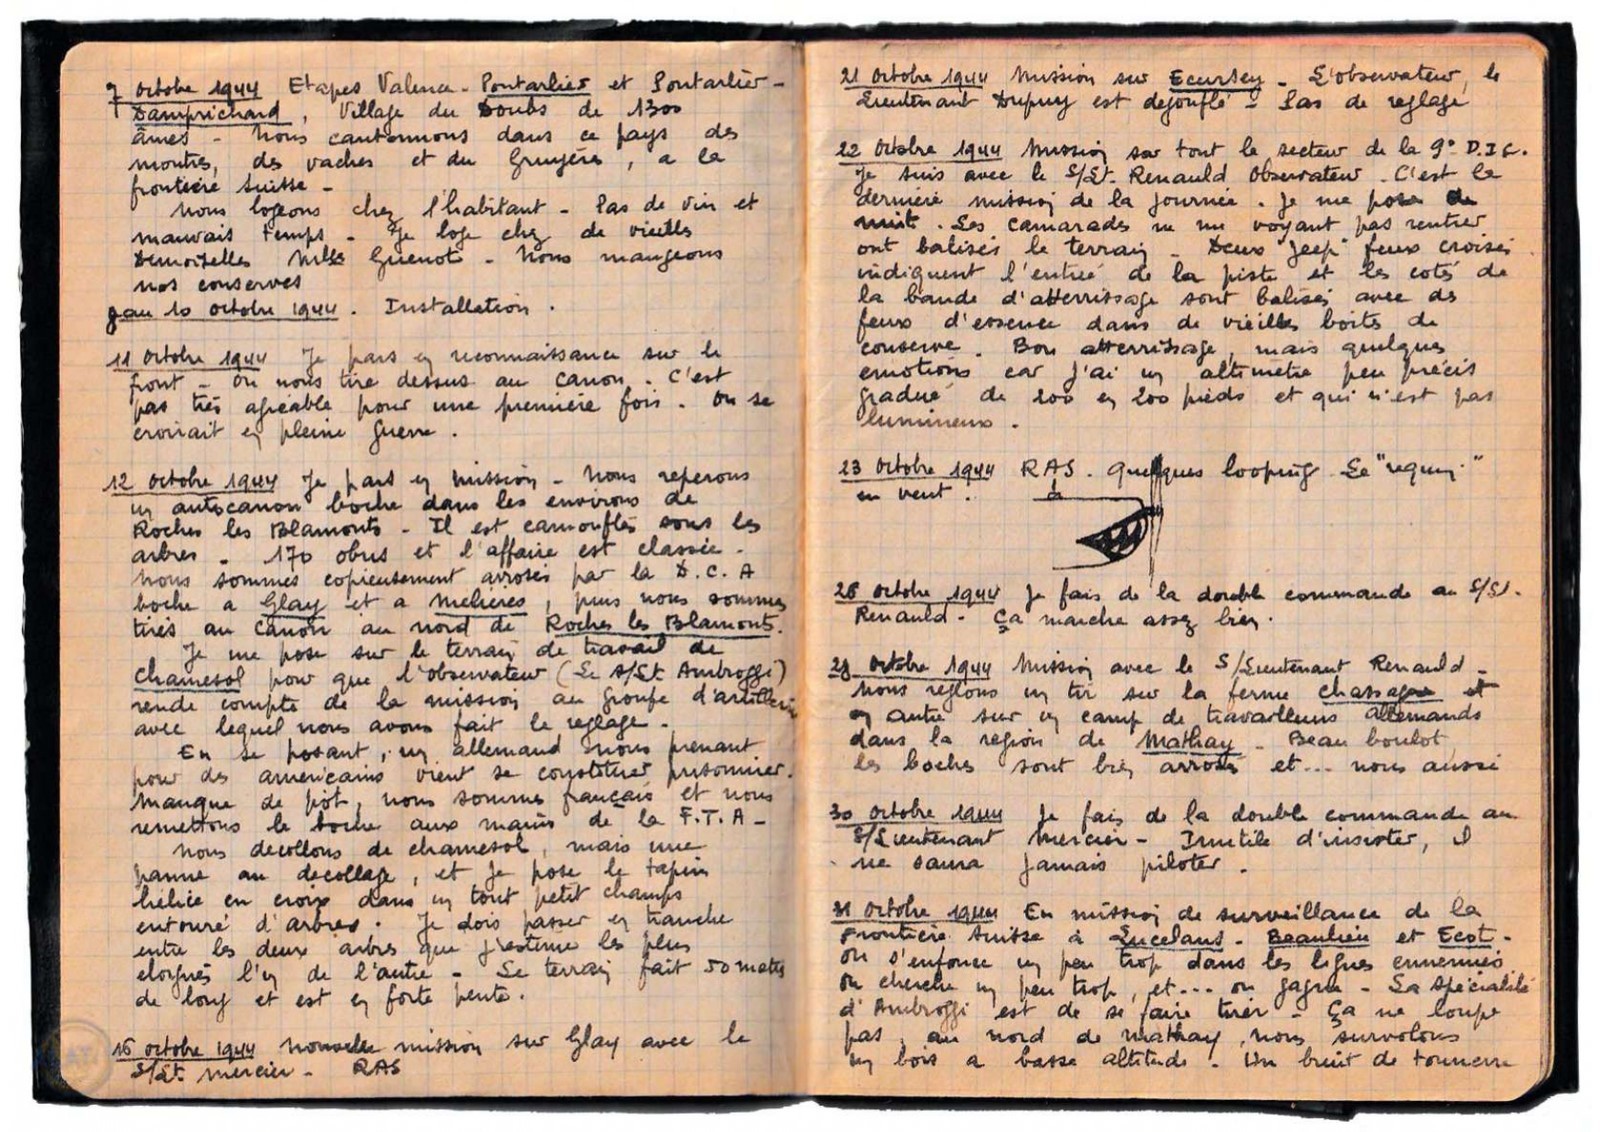 7 octobre 1944 Etapes Valence - Pontarlier et Pontarlier -
Damprichard, Village du Doubs de 1300
âmes - Nous cantonnons dans ce pays des
montres, des vaches et du Gruyères, a la
frontière Suisse -
Nous logeons chez l'habitant - Pas de vin et
mauvais temps - Je loge chez de vieilles
Demoiselles Mlles Guenot - Nous mangeons
nos conserves
9 au 10 octobre 1944. Installation.
11 octobre 1944 Je pars en reconnaissance sur le
front - On nous tire dessus au canon. C'est
pas très agréable pour une première fois. On se
croirait en pleine guerre.
12 octobre 1944 Je pars en mission - Nous reperons
un autocanon boche dans les environs de
Roches les Blamonts - Il est camouflés sous les
arbres - 170 obus et l'affaire est classée -
Nous sommes copieusement arrosés par la D.C.A
boche a Glay et a Melières, puis nous sommes
tirés au canon au nord de Roches les Blamonts.
Je me pose sur le terrain de travail de
Chamesol pour que l'observateur (Le S/Lt Ambroggi)
rende compte de la mission au groupe d'artillerie
avec lequel nous avons fait le reglage -
En se posant, un allemand nous prenant
pour des americains vient se constituer prisonnier.
Manque de pôt, nous sommes français et nous
remettons le boche aux mains de la F.T.A -
Nous decollons de chamesol, mais une
panne au decollage, et je pose le tapin
hélice en croix dans un tout petit champs
entouré d'arbres. Je dois passer en tranche
entre les deux arbres que j'estime les plus
eloignés l'un de l'autre - Le terrain fait 50 mètres
de long et est en forte pente.
16 octobre 1944 Nouvelle mission sur Glay avec le
S/Lt. Mercier - RAS
21 Octobre 1944 Mission sur Ecursey - L'observateur, le
Lieutenant Dupuy est degonflé - Pas de reglage
22 Octobre 1944 Mission sur tout le secteur de la 9° D.I.C.
Je suis avec le S/Lt. Renauld Observateur. C'est la
dernière mission de la journée. Je me pose de
nuit. Les camarades ne me voyant pas rentrer
ont balisés le terrain - Deux "Jeep" feux croisés
indiquent l'entrée de la piste et les cotés de
la bande d'atterrissage sont balisés avec des
feux d'essence dans de vieilles boites de
conserve. Bon atterrissage, mais quelques
emotions car j'ai un altimetre peu précis
gradué de 200 en 200 pieds et qui n'est pas
lumineux.
23 Octobre 1944 RAS. Quelques looping. Le "requin"
en veut.
26 octobre 1944 Je fais de la double commande au S/Lt.
Renauld - Ça marche assez bien.
29 Octobre 1944 Mission avec le S/Lieutenant Renauld -
Nous reglons un tir sur la ferme chassagne et
un autre sur un camp de travailleurs allemands
dans la region de Mathay - Beau boulot
les boches sont bien arrosés et... nous aussi
30 octobre 1944 Je fais de la double commande au
S/Lieutenant Mercier - Inutile d'insister, il
ne saura jamais piloter.
31 Octobre 1944 En mission de surveillance de la
Frontière Suisse à Lucelans - Beaulieu et Ecot -
on s'enfonce un peu trop dans les lignes ennemies
on cherche un peu trop, et... on gagne - La spécialité
d'Ambroggi est de se faire tirer - Ça ne loupe
pas, au nord de mathay, nous survolons
un bois a basse altitude. Un bruit de tonnerre